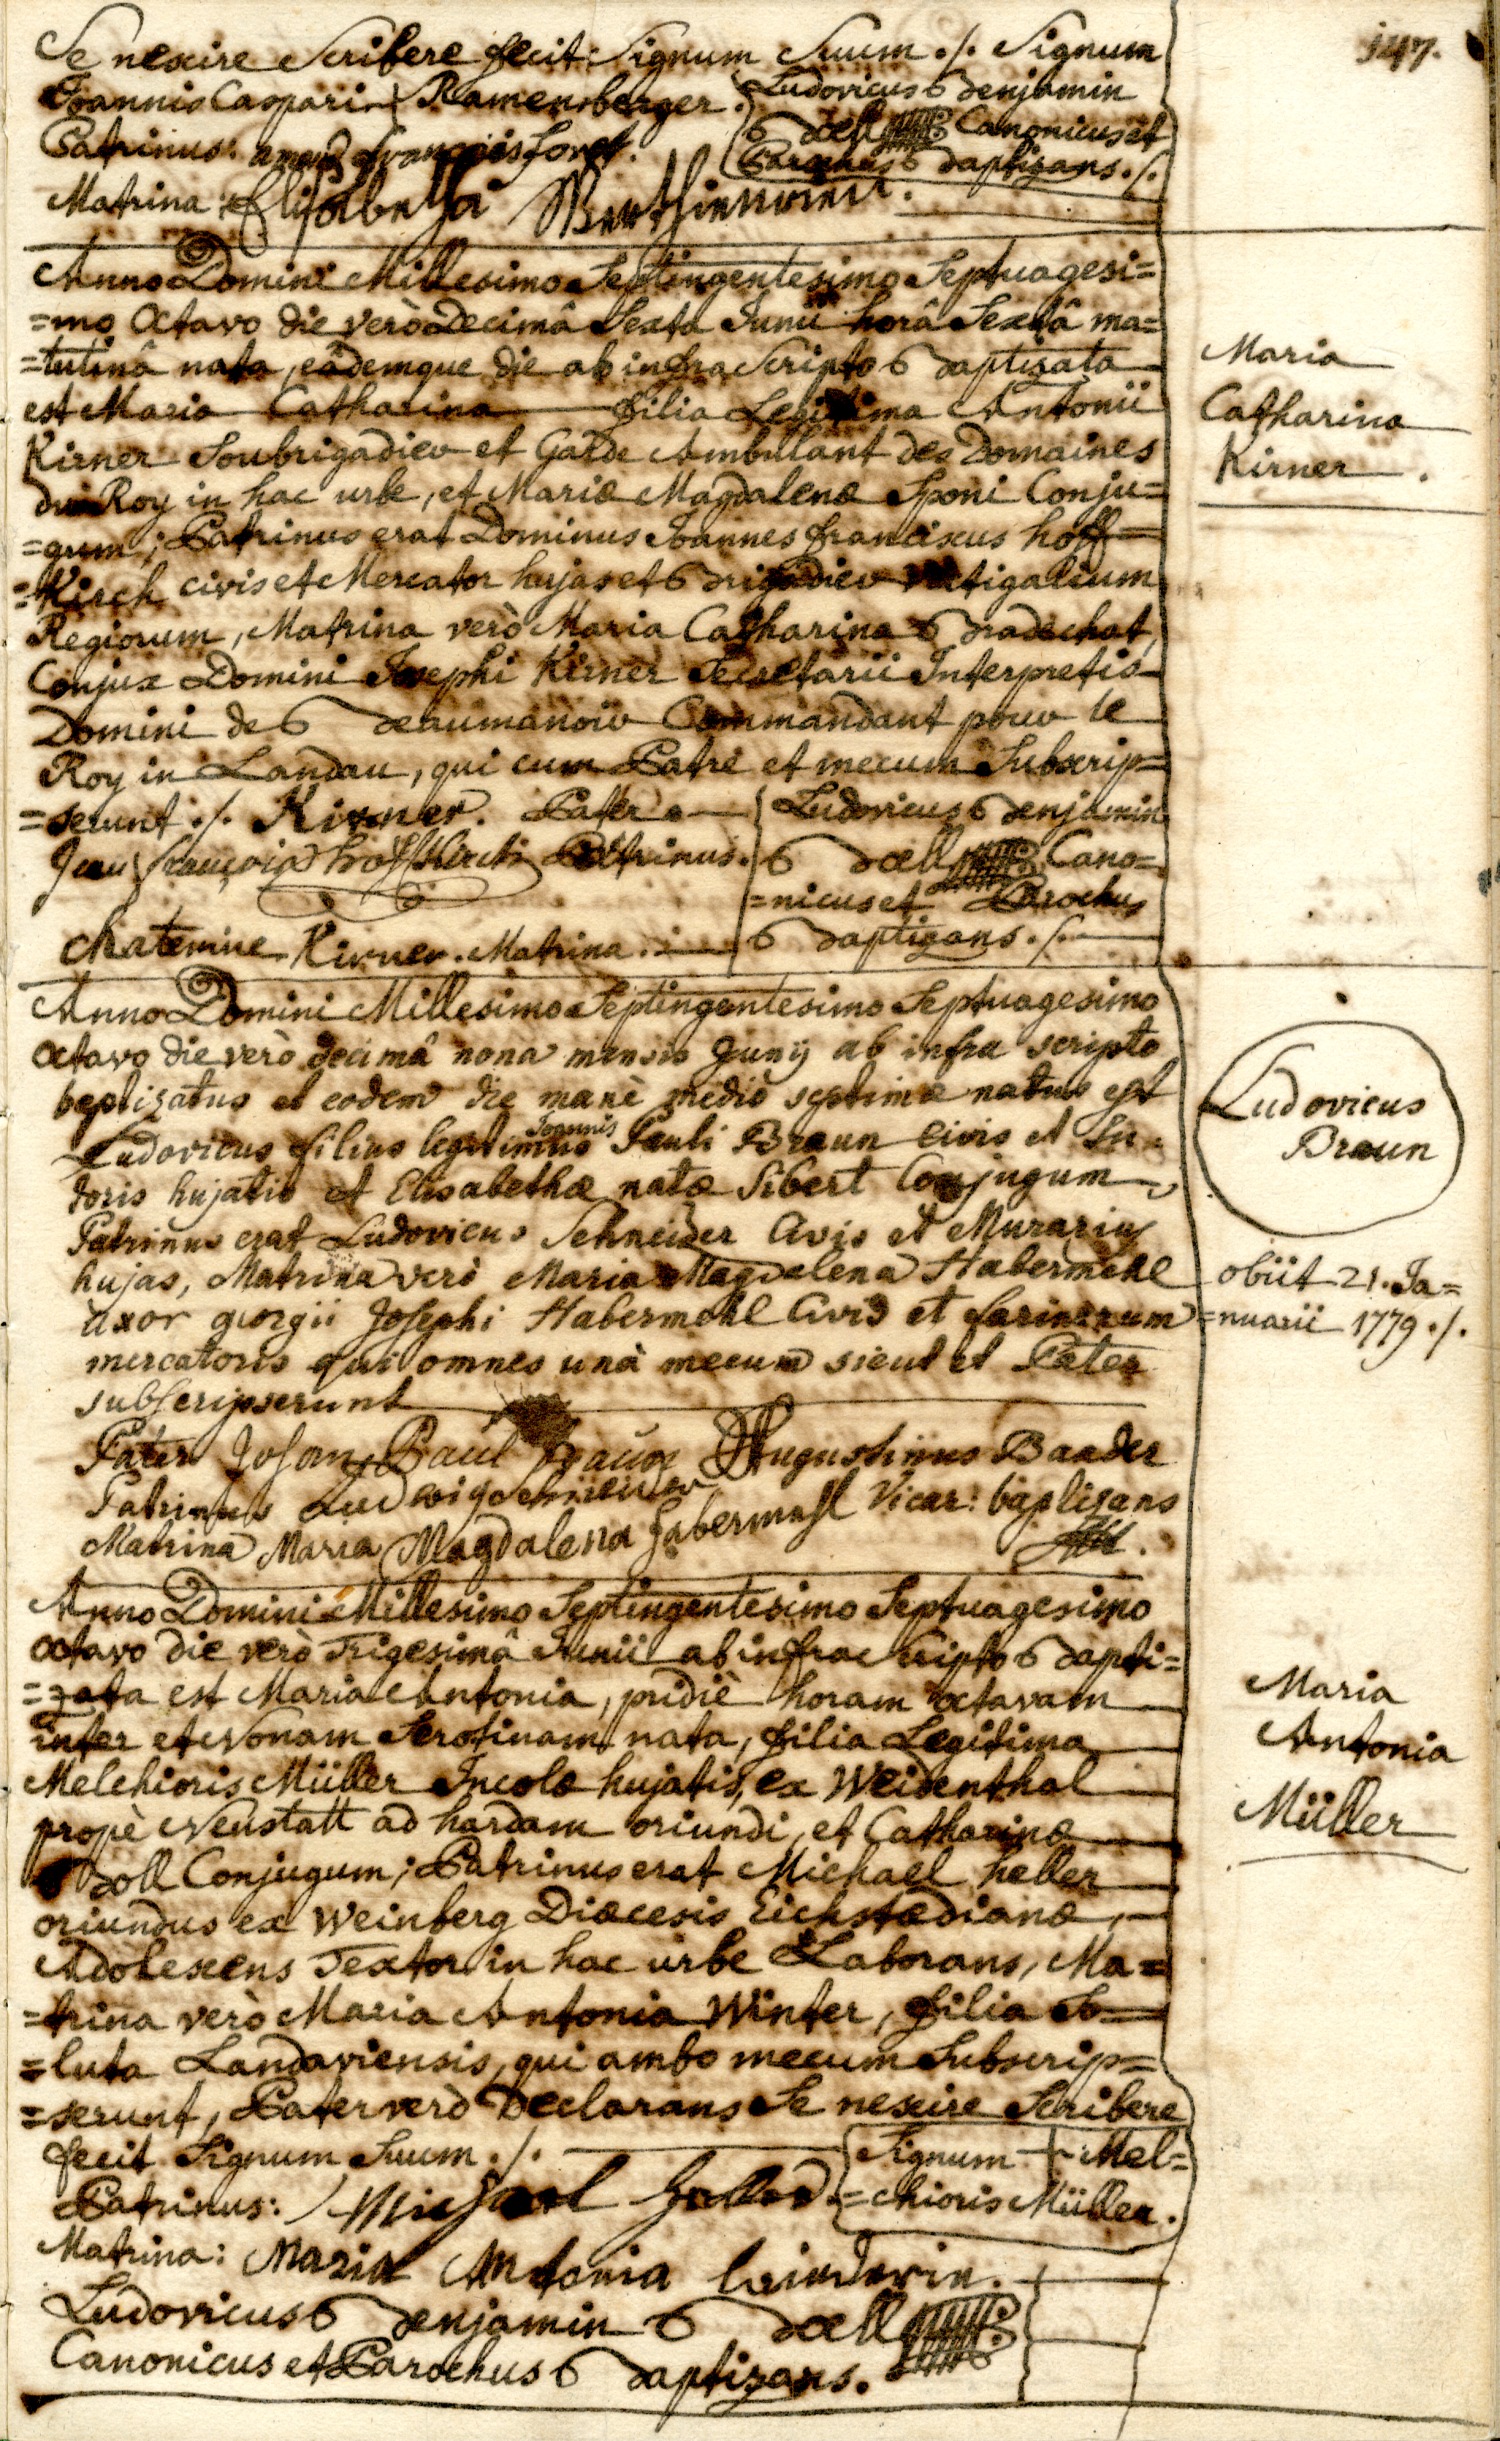 147.
Se nescire Scribere fecit Signum Suum ./. Signum
Joannis Caspari Ramensberger.
Ludovicus Benjamin
Boell Canonicus et
Parochus Baptizans ./.
Patrinus: françois foret.
Matrina: Elisabetha
Anno Domini Millesimo Septingentesimo Septuagesi=
=mo Octavo die verò Decimâ Sexta Junii horâ Sextâ ma=
=tutinâ nata, eâdemque die ab infra Scripto Baptizata
est Maria Catharina filia Legitima Antonii
Kirner Soubrigadier et Garde Ambulant des Domaines
du Roy in hac urbe, et Mariæ Magdalenæ Sponi Conju=
=gum; Patrinus erat Dominus Joannes franciscus hoff=
=Kirch civis et Mercator hujas et Brigadier Vectigalium
Regiorum, Matrina verò Maria Catharina Bradechat,
Conjux Domini Josephi Kirner Secretarii Interpretis
Domini de Beaumanoir Commandant pour le
Roy in Landau, qui cum Patre et mecum Subscrip=
=serunt ./. Kirner. Pater
Jean françois hoffkirch Patrinus.
Chaterine Kirner. Matrina.
Ludovicus Benjamin
Boell Cano=
=nicus et Parochus
Baptizans ./.
Maria
Catharina
Kirner.
Anno Domini Millesimo Septingentesimo Septuagesimo
octavo die verò decimâ nona mensis Junij ab infra scripto
baptizatus et eodem die manè mediò septimæ natus est
Ludovicus filius legitimus Joannis Pauli Braun Civis et Su=
toris hujatis et Elisabethæ natæ Sibert Conjugum
Patrinus erat Ludovicus Schneider Civis et Murarius
hujas, Matrina verò Maria Magdalena Habermehl
uxor georgii Josephi Habermehl Civis et farinarum
mercatoris qui omnes unà mecum sicut et Pater
subscripserunt
Pater Johan Paul Braun
Augustinus Baader
Patrinus Ludwig Schneider
Vicar: baptizans
Matrina Maria Magdalena Habermehl
Ludovicus
Braun
obiit 21. Ja=
=nuarii 1779 ./.
Anno Domini Millesimo Septingentesimo Septuagesimo
octavo die verò Trigesimâ Junii ab infra Scripto Bapti=
=zata est Maria Antonia, pridiè horam octavam
inter et Nonam Serotinam nata, filia Legitima
Melchioris Müller Incolæ hujatis, ex Weidenthal
propè Neustatt ad hardam oriundi, et Catharinæ
Boll Conjugum; Patrinus erat Michael heller
oriundus ex Weinberg Diœcesis Eichstædianæ,
Adolescens Textor in hac urbe Laborans, Ma=
=trina verò Maria Antonia Winter, filia So=
=luta Landaviensis, qui ambo mecum Subscrip=
=serunt, Pater verò Declarans Se nescire Scribere
fecit Signum Suum ./.
Signum + Mel=
=chioris Müller.
Patrinus: Michael
Matrina: Maria Antonia
Ludovicus Benjamin Boell
Canonicus et Parochus Baptizans.
Maria
Antonia
Müller